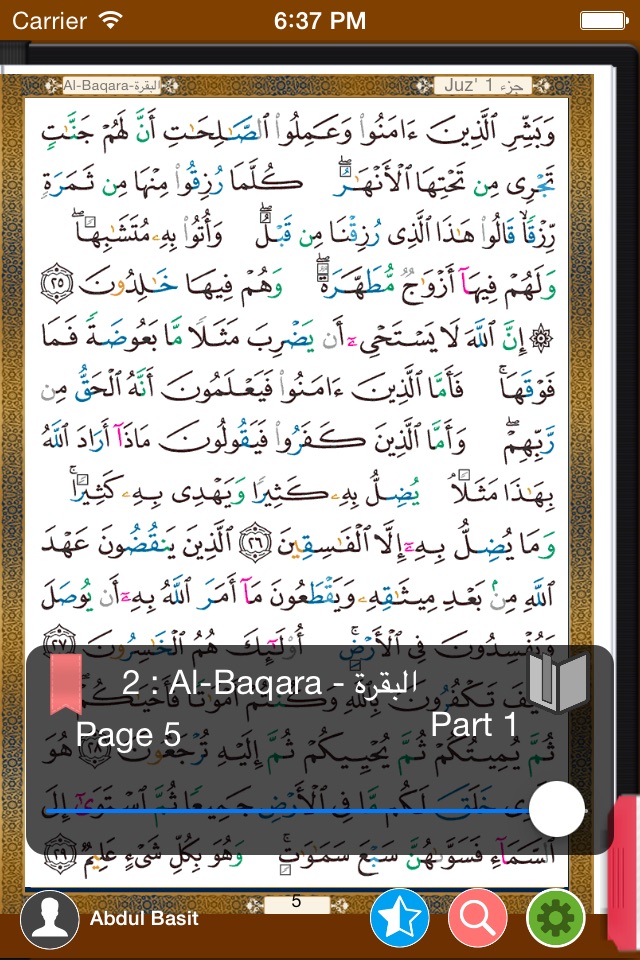 Carrier 6:37 PM
Al-Baqara-البقرة Juz' 1 جزء
وَبَشِّرِ ٱلَّذِينَ ءَامَنُوا۟ وَعَمِلُوا۟ ٱلصَّـٰلِحَـٰتِ أَنَّ لَهُمْ جَنَّـٰتٍ
تَجْرِى مِن تَحْتِهَا ٱلْأَنْهَـٰرُ ۖ كُلَّمَا رُزِقُوا۟ مِنْهَا مِن ثَمَرَةٍ
رِّزْقًا ۙ قَالُوا۟ هَـٰذَا ٱلَّذِى رُزِقْنَا مِن قَبْلُ ۖ وَأُتُوا۟ بِهِۦ مُتَشَـٰبِهًا ۖ
وَلَهُمْ فِيهَآ أَزْوَٰجٌ مُّطَهَّرَةٌ ۖ وَهُمْ فِيهَا خَـٰلِدُونَ ٢٥
۞ إِنَّ ٱللَّهَ لَا يَسْتَحْىِۦٓ أَن يَضْرِبَ مَثَلًا مَّا بَعُوضَةً فَمَا
فَوْقَهَا ۚ فَأَمَّا ٱلَّذِينَ ءَامَنُوا۟ فَيَعْلَمُونَ أَنَّهُ ٱلْحَقُّ مِن
رَّبِّهِمْ ۖ وَأَمَّا ٱلَّذِينَ كَفَرُوا۟ فَيَقُولُونَ مَاذَآ أَرَادَ ٱللَّهُ
بِهَـٰذَا مَثَلًا ۘ يُضِلُّ بِهِۦ كَثِيرًا وَيَهْدِى بِهِۦ كَثِيرًا ۚ
وَمَا يُضِلُّ بِهِۦٓ إِلَّا ٱلْفَـٰسِقِينَ ٢٦ ٱلَّذِينَ يَنقُضُونَ عَهْدَ
ٱللَّهِ مِنۢ بَعْدِ مِيثَـٰقِهِۦ وَيَقْطَعُونَ مَآ أَمَرَ ٱللَّهُ بِهِۦٓ أَن يُوصَلَ
وَيُفْسِدُونَ فِى ٱلْأَرْضِ ۚ أُو۟لَـٰٓئِكَ هُمُ ٱلْخَـٰسِرُونَ ٢٧
2 : Al-Baqara - البقرة
تَكْفُرُونَ بِٱللَّهِ وَكُنتُمْ أَمْوَٰتًا فَأَحْيَـٰكُمْ ۖ
Page 5 Part 1
ثُمَّ يُمِيتُكُمْ ثُمَّ يُحْيِيكُمْ ثُمَّ إِلَيْهِ تُرْجَعُونَ ٢٨ هُوَ
خَلَقَ لَكُم مَّا فِى ٱلْأَرْضِ جَمِيعًا ثُمَّ ٱسْتَوَىٰٓ إِلَى
ٱلسَّمَآءِ فَسَوَّىٰهُنَّ سَبْعَ سَمَـٰوَٰتٍ ۚ وَهُوَ بِكُلِّ شَىْءٍ عَلِيمٌ ٢٩
5
Abdul Basit